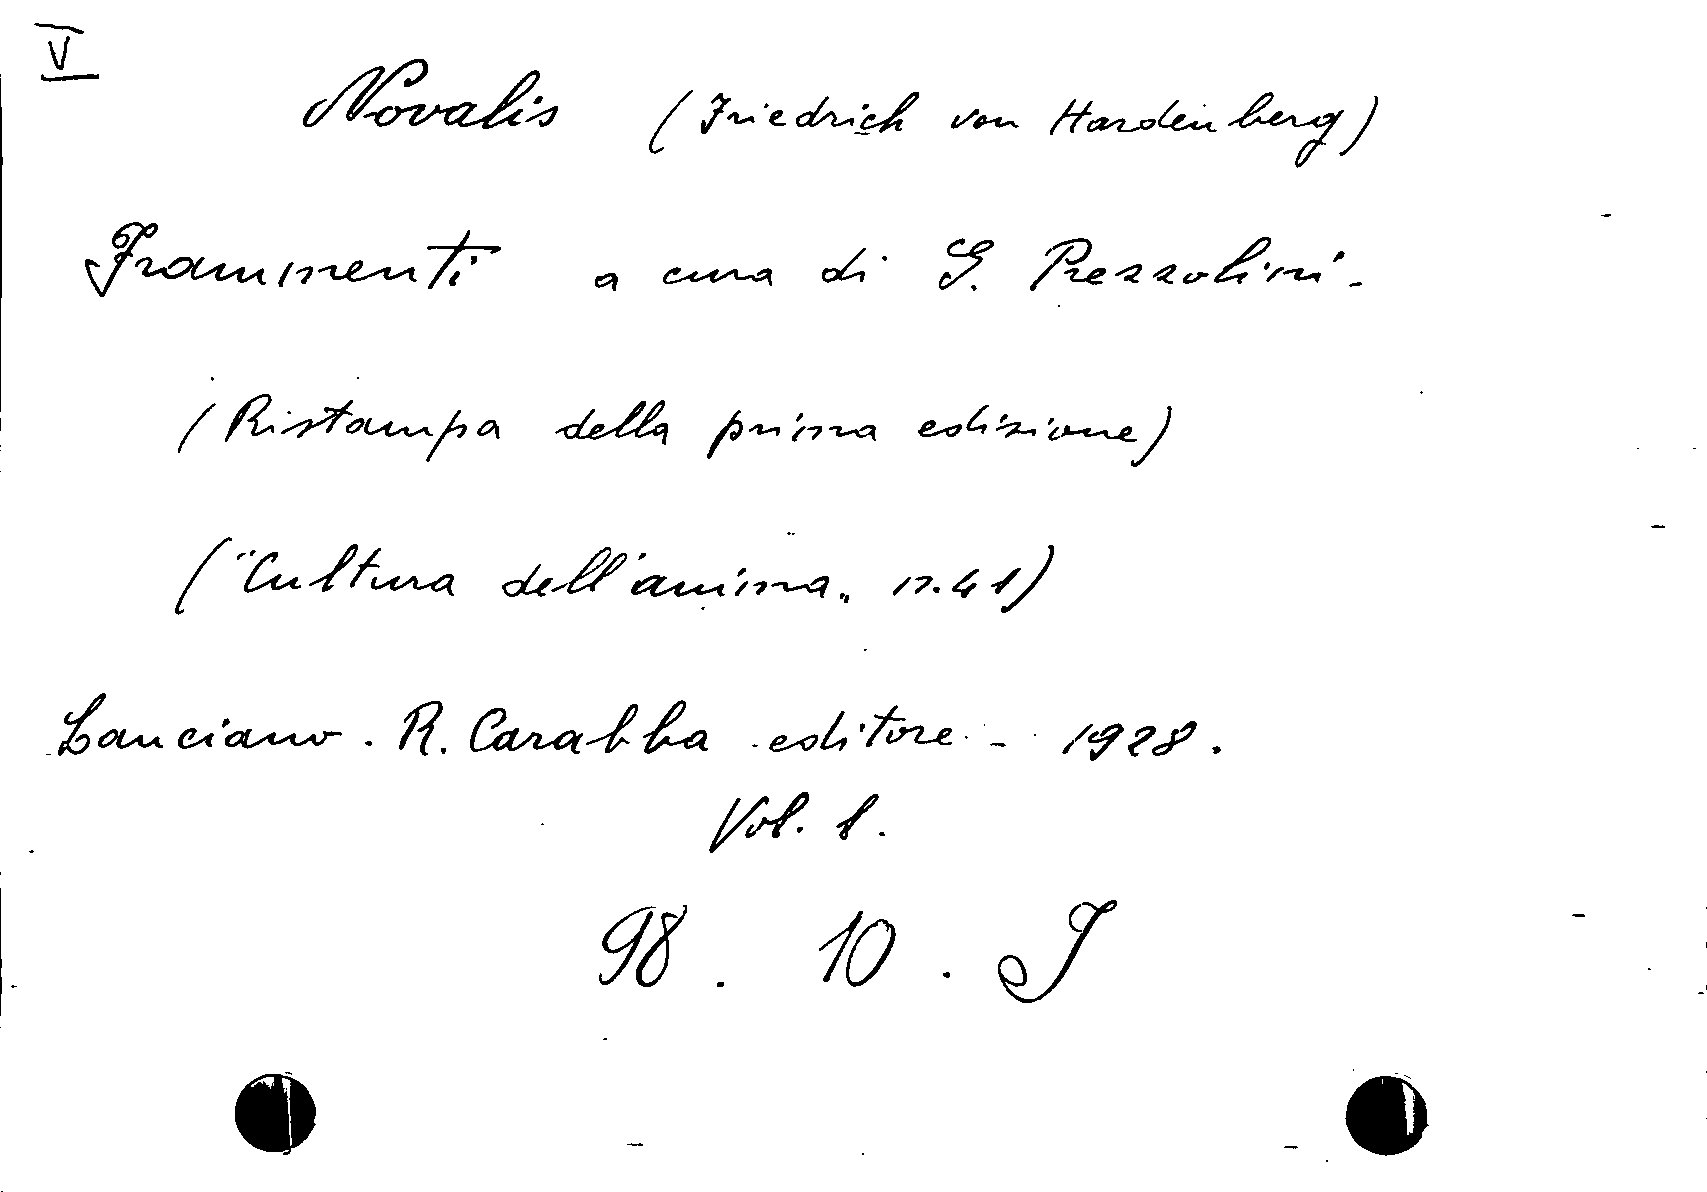 V
Novalis (Friedrich von Hardenberg)
Frammenti a cura di G. Prezzolini -
(Ristampa della prima edizione)
("Cultura dell'anima„ n. 41)
Lanciano - R. Carabba editore - 1928.
Vol. 1.
98. 10. J